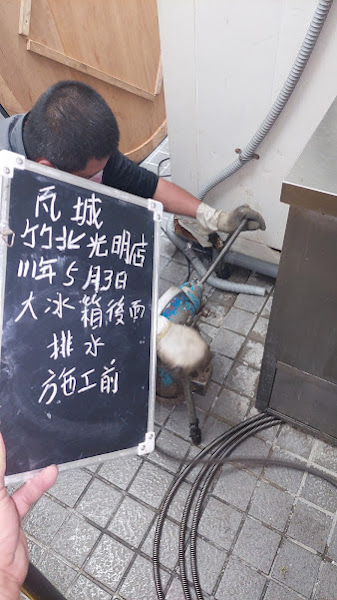 瓦城
竹北光明店
111年5月3日
大冰箱後面
排水
施工前